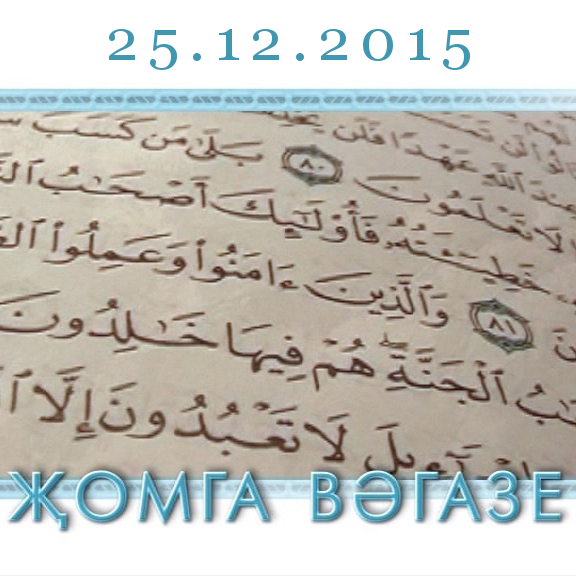 25.12.2015
عِندَ ٱللَّهِ عَهْدًا فَلَن
لَا تَعْلَمُونَ ٨٠ بَلَىٰ مَن كَسَبَ
خَطِيٓـَٔتُهُۥ فَأُو۟لَٰٓئِكَ أَصْحَٰبُ
٨١ وَٱلَّذِينَ ءَامَنُوا۟ وَعَمِلُوا۟
ٱلْجَنَّةِ ۖ هُمْ فِيهَا خَٰلِدُونَ
لَا تَعْبُدُونَ إِلَّا
ҖОМГА ВӘГАЗЕ